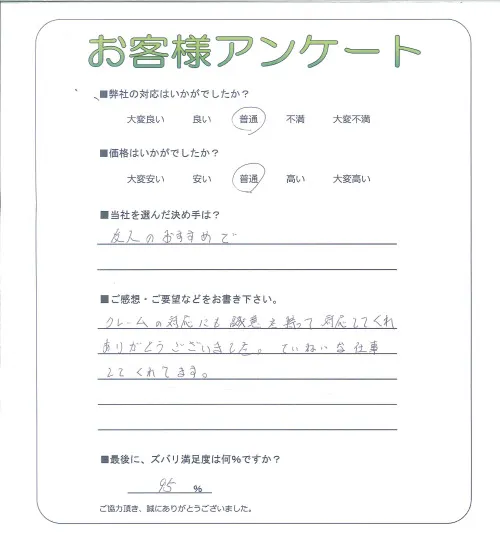 お客様アンケート
■弊社の対応はいかがでしたか？
大変良い 良い 普通 不満 大変不満
■価格はいかがでしたか？
大変安い 安い 普通 高い 大変高い
■当社を選んだ決め手は？
友人のおすすめで
■ご感想・ご要望などをお書き下さい。
クレームの対応にも誠意を持って対応してくれ
ありがとうございました。ていねいな仕事
してくれてます。
■最後に、ズバリ満足度は何%ですか？
95 %
ご協力頂き、誠にありがとうございました。